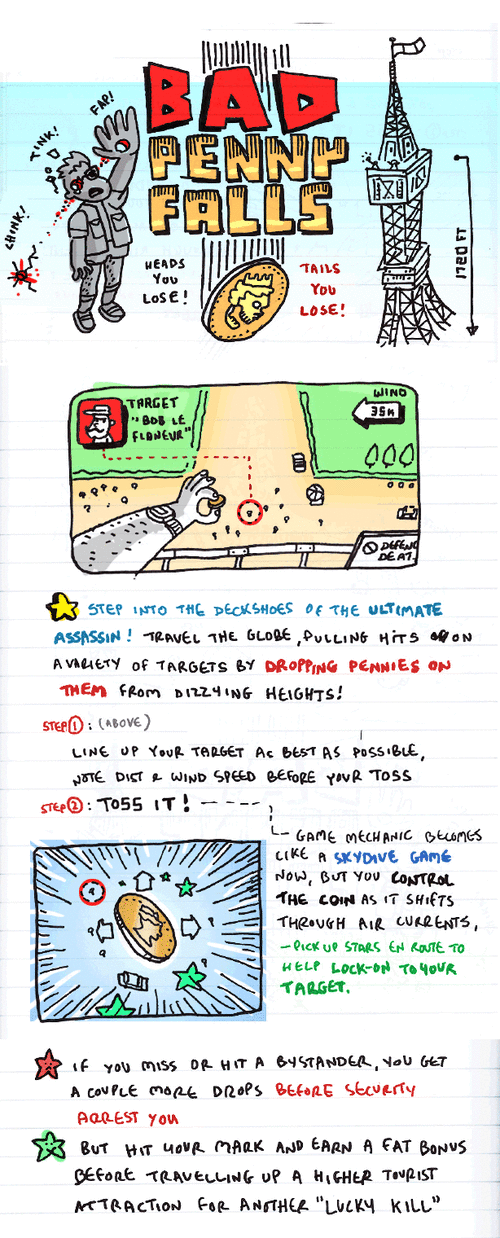 BAD
PENNY
FALLS
FAP!
TINK!
CHINK!
HEADS
YOU
LOSE!
TAILS
YOU
LOSE!
1720 FT
TARGET
"BOB LE
FLANEUR"
WIND
35M
DEFENSE
DE AT.
STEP INTO THE DECKSHOES OF THE ULTIMATE
ASSASSIN! TRAVEL THE GLOBE, PULLING HITS ON
A VARIETY OF TARGETS BY DROPPING PENNIES ON
THEM FROM DIZZYING HEIGHTS!
STEP 1: (ABOVE)
LINE UP YOUR TARGET AS BEST AS POSSIBLE,
NOTE DIST & WIND SPEED BEFORE YOUR TOSS
STEP 2: TOSS IT!
GAME MECHANIC BECOMES
LIKE A SKYDIVE GAME
NOW, BUT YOU CONTROL
THE COIN AS IT SHIFTS
THROUGH AIR CURRENTS,
- PICK UP STARS EN ROUTE TO
HELP LOCK-ON TO YOUR
TARGET.
IF YOU MISS OR HIT A BYSTANDER, YOU GET
A COUPLE MORE DROPS BEFORE SECURITY
ARREST YOU
BUT HIT YOUR MARK AND EARN A FAT BONUS
BEFORE TRAVELLING UP A HIGHER TOURIST
ATTRACTION FOR ANOTHER "LUCKY KILL"